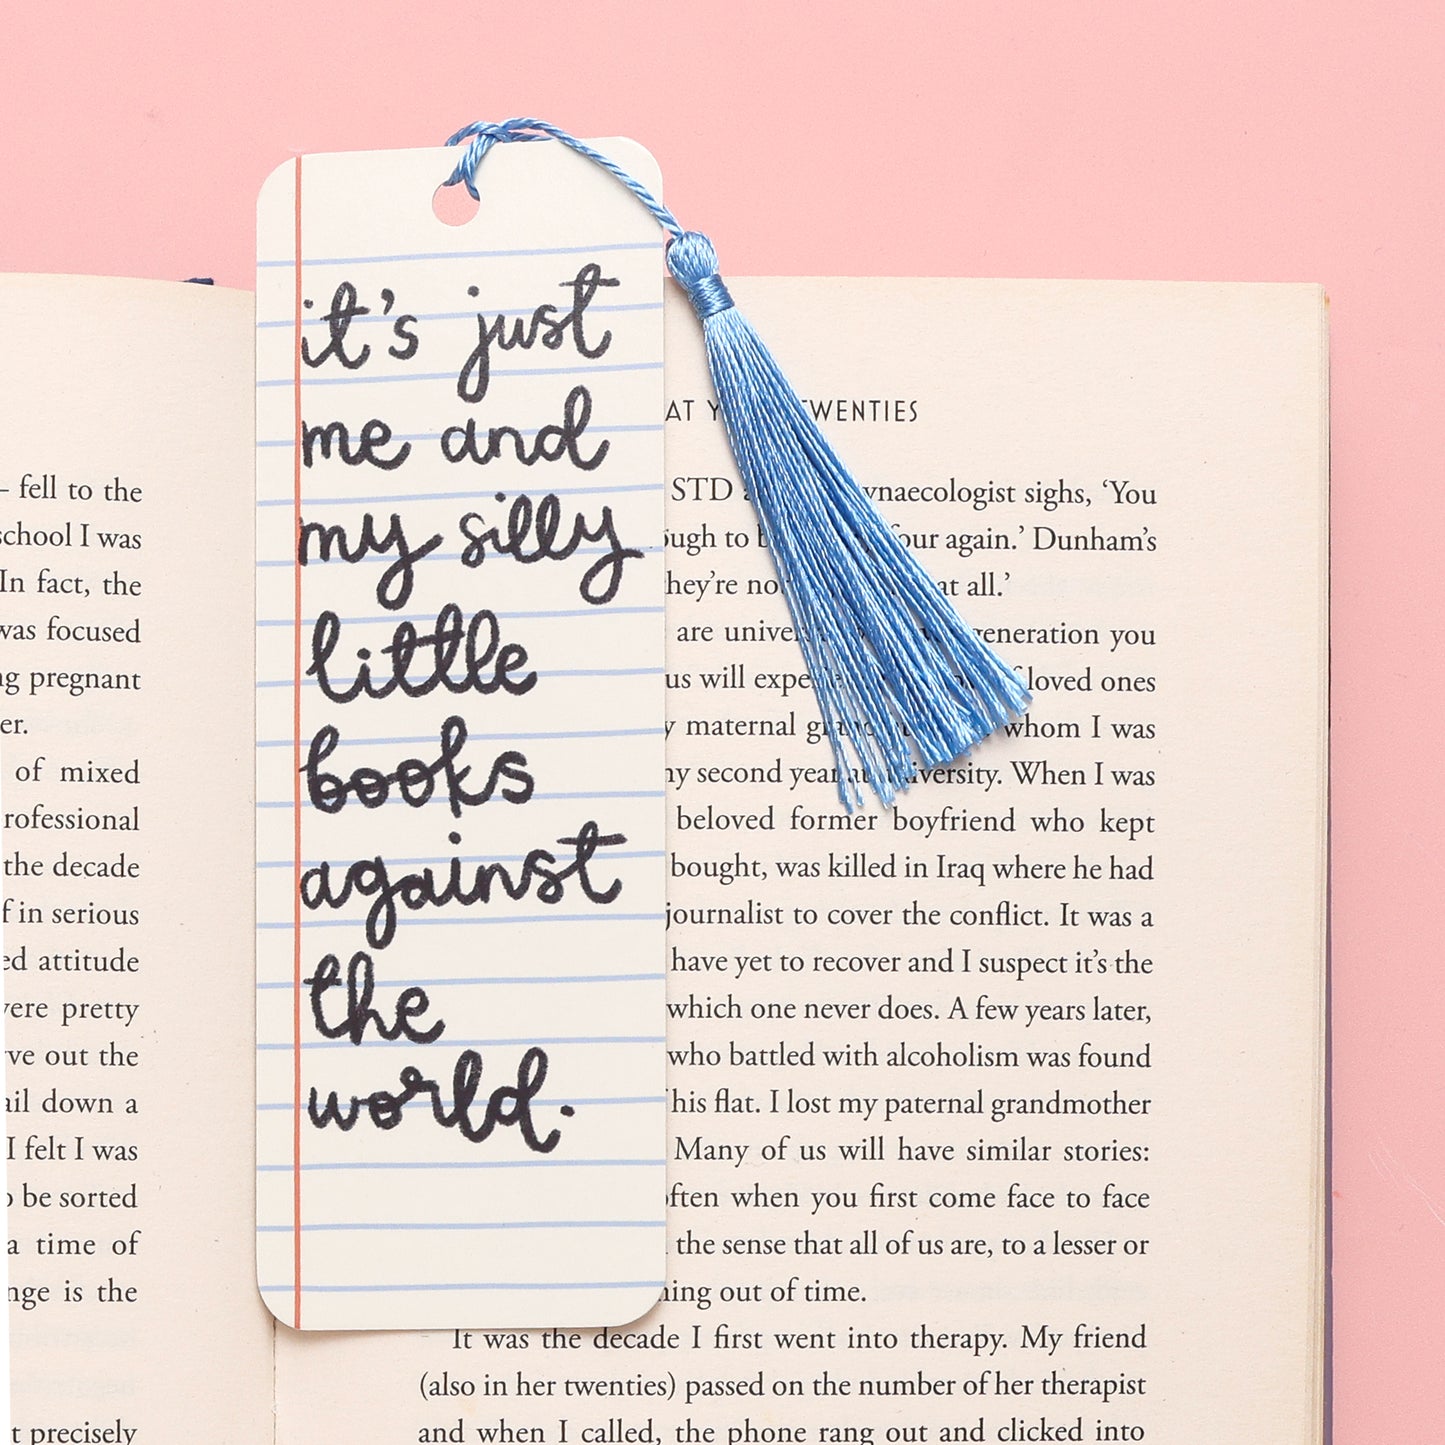 it's just
me and
my silly
little
books
against
the
world.
– fell to the
school I was
In fact, the
was focused
pregnant
of mixed
the decade
in serious
attitude
pretty
out the
down a
I felt I was
be sorted
a time of
is the
precisely
TWENTIES
STD
sighs, ‘You
to
again.’ Dunham’s
they’re
at all.’
are
generation you
us will
loved ones
maternal
whom I was
second year at university. When I was
beloved former boyfriend who kept
bought, was killed in Iraq where he had
journalist to cover the conflict. It was a
have yet to recover and I suspect it’s the
which one never does. A few years later,
who battled with alcoholism was found
his flat. I lost my paternal grandmother
Many of us will have similar stories:
often when you first come face to face
the sense that all of us are, to a lesser or
out of time.
It was the decade I first went into therapy. My friend
(also in her twenties) passed on the number of her therapist
and when I called, the phone rang out and clicked into